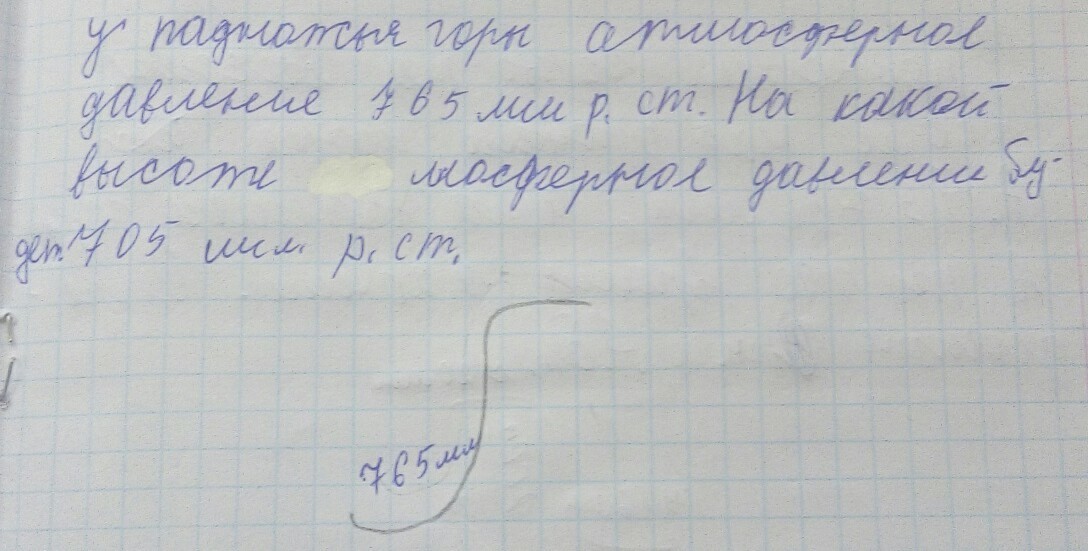 у падножья горы атмосферное
давление 765 мм р. ст. На какой
высоте мосферное давление бу-
дет 705 мм. р. ст.
765 мм